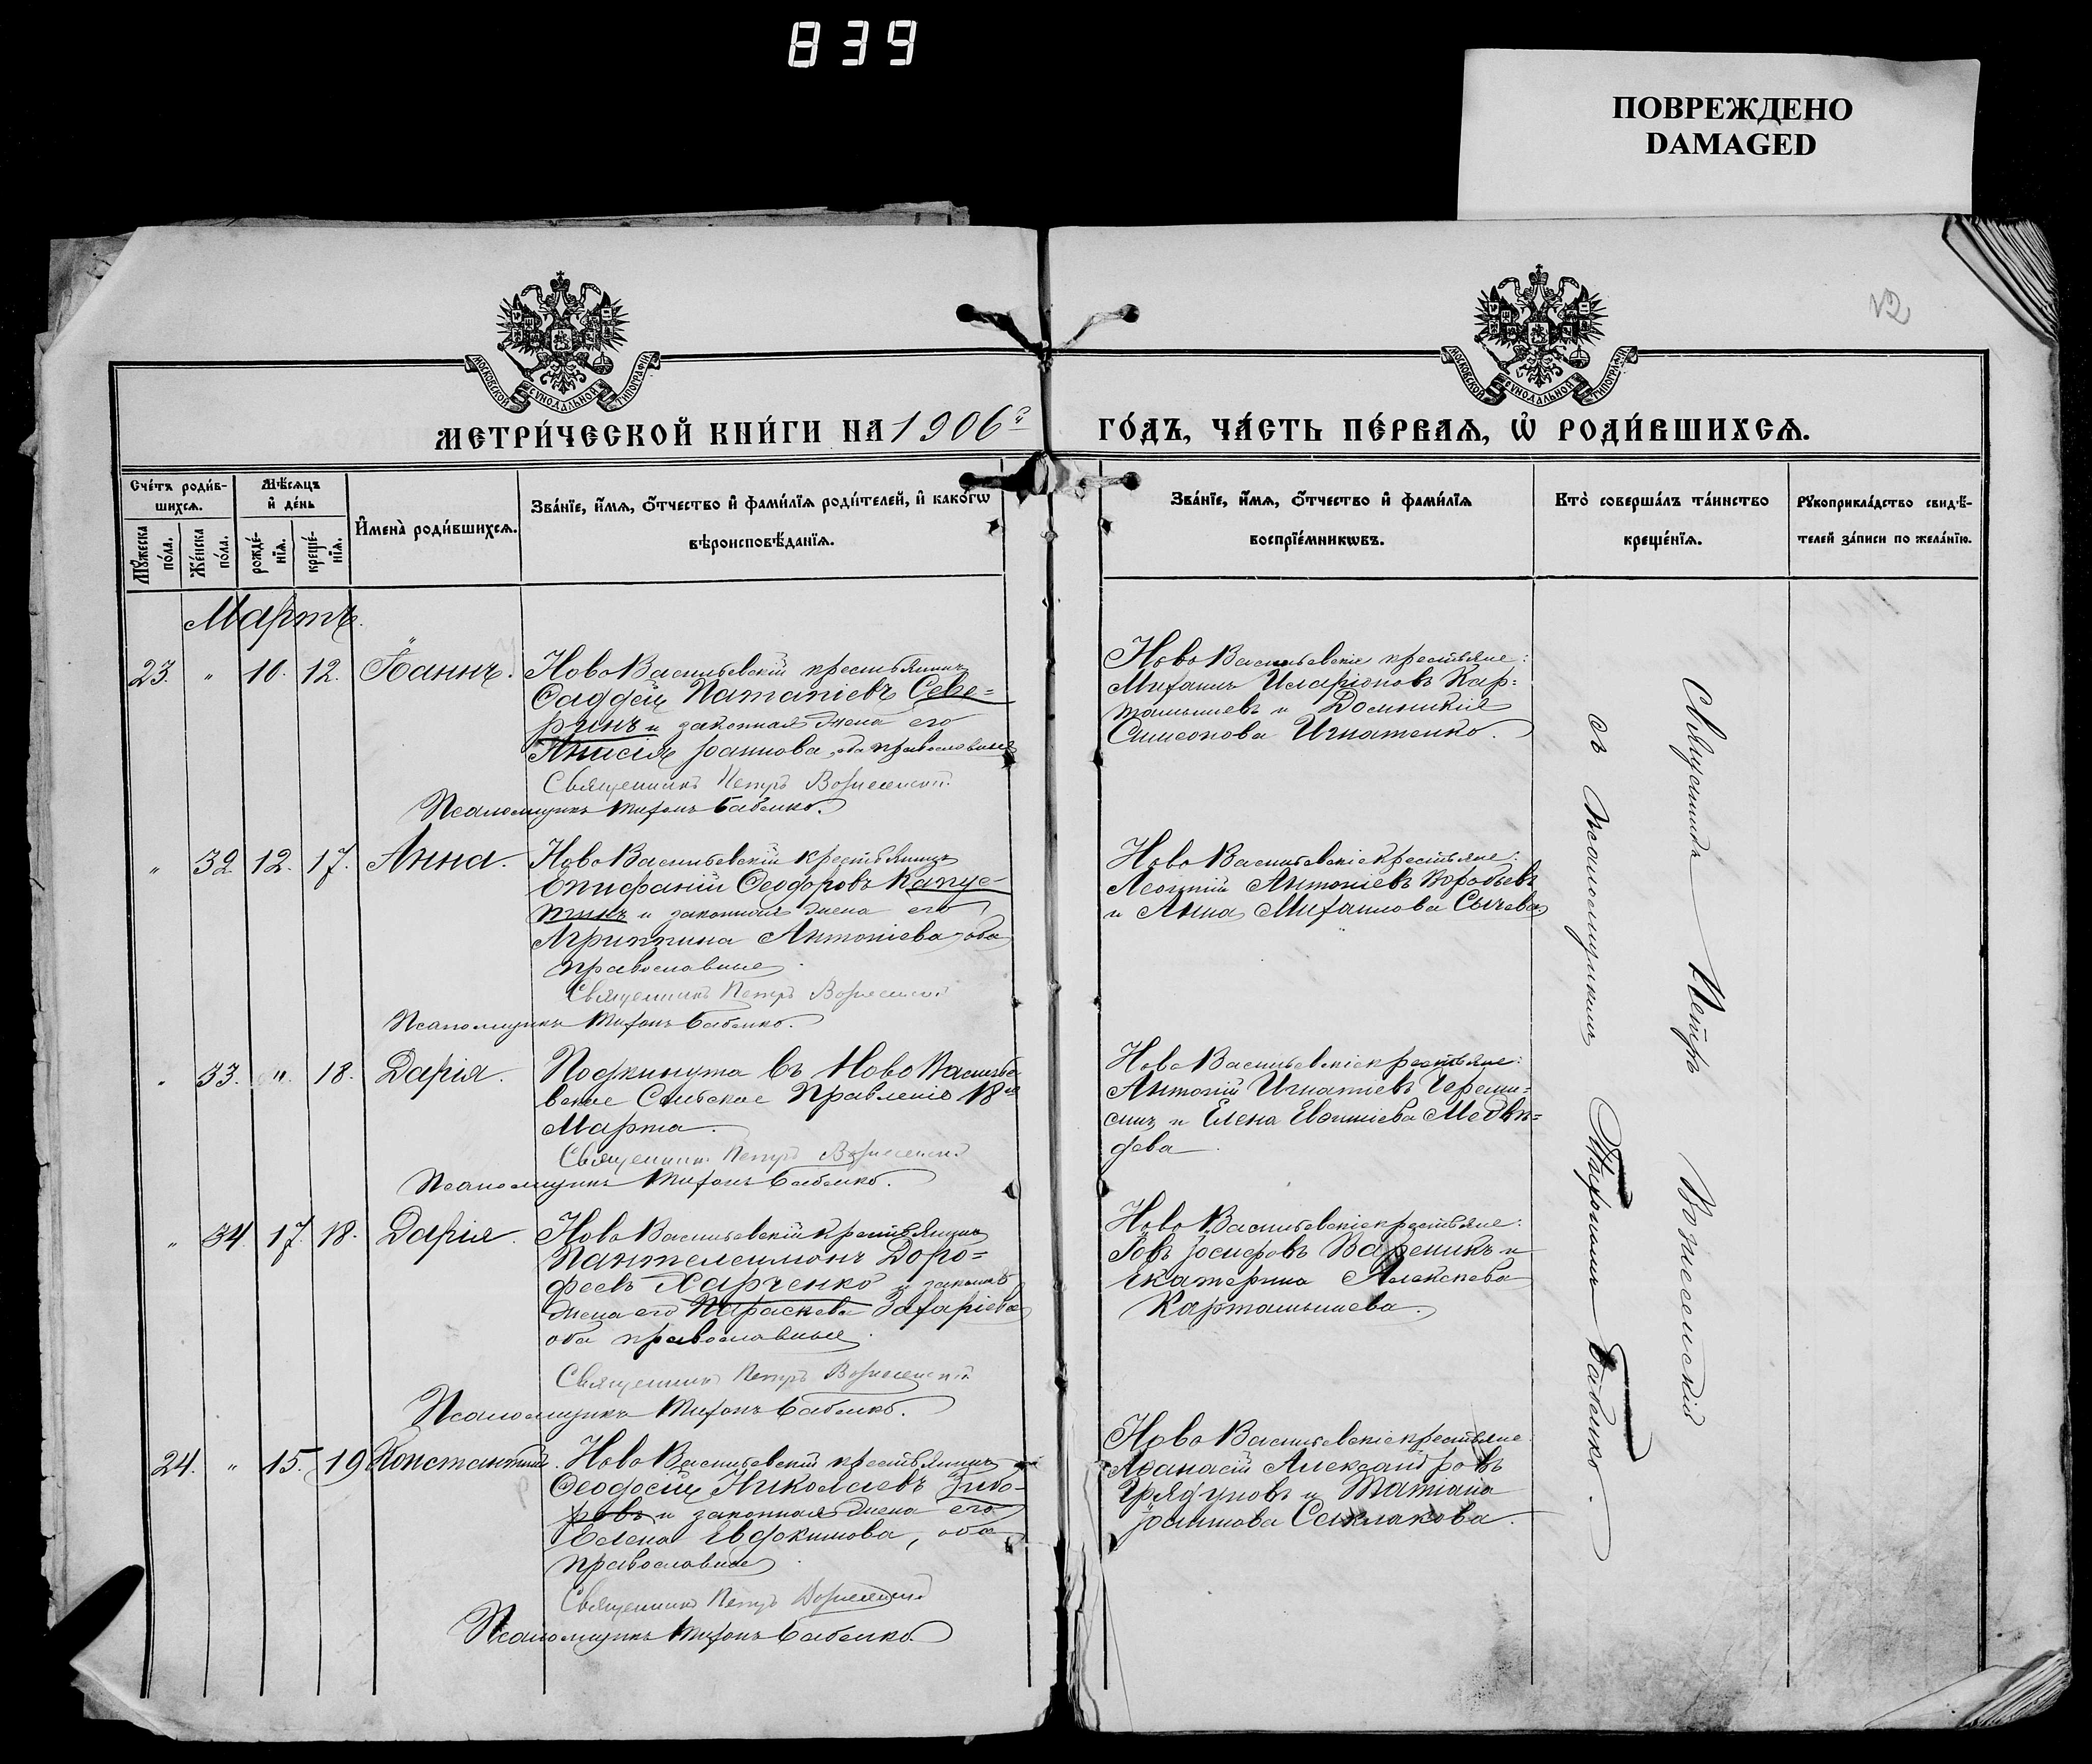 839
ПОВРЕЖДЕНО
DAMAGED
12
МОСКОВСКОЙ СѴНОДАЛЬНОЙ ТИПОГРАФІИ
МОСКОВСКОЙ СѴНОДАЛЬНОЙ ТИПОГРАФІИ
МЕТРИ́ЧЕСКОЙ КНИ́ГИ НА 1906 г.
ГО́ДЪ, ЧА́СТЬ ПЕ́РВАѦ, Ѡ҆ РОДИ́ВШИХСѦ.
Сче́тъ роди́в-
шихсѧ.
Мѣ́сѧцъ
и҆ де́нь
Мꙋ́жеска по́ла.
Же́нска по́ла.
рожде́-
нїѧ.
креще́-
нїѧ.
И҆мена̀ роди́вшихсѧ.
Зва́нїе, и҆́мѧ, ѻ҆́тчество и҆ фами́лїѧ роди́телей, и҆ како́гѡ
вѣроисповѣ́данїѧ.
Зва́нїе, и҆́мѧ, ѻ҆́тчество и҆ фами́лїѧ
воспрїе́мникѡвъ.
Кто̀ соверша́лъ та́инство
креще́нїѧ.
Рꙋкоприкла́дство свидѣ́-
телей за́писи по жела́нїю.
Мартъ.
23. " 10. 12. Іоаннъ. НовоВасильевскій крестьянинъ
Фаддей Ипатіевъ Севе=
ринъ и законная жена его
Анисія Іоаннова, оба православные
Священникъ Петръ Вознесенскій
Псаломщикъ Тихонъ Бабенко.
НовоВасильевскіе крестьяне:
Михаилъ Иларіоновъ Кар=
тамышевъ и Домникія
Симеонова Игнатенко.
" 32. 12. 17. Анна. НовоВасильевскій крестьянинъ
Епифаній Феодоровъ Капус-
тинъ и законная жена его
Агриппина Антоніева, оба
православные.
Священникъ Петръ Вознесенскій
Псаломщикъ Тихонъ Бабенко.
НовоВасильевскіе крестьяне:
Леонтій Антоніевъ Воробьевъ
и Анна Михаилова Сычева
" 33. " 18. Дарія. Подкинута въ НовоВасилье
вское Сельское Правленіе 18го
Марта.
Священникъ Петръ Вознесенскій
Псаломщикъ Тихонъ Бабенко.
НовоВасильевскіе крестьяне:
Антоній Игнатіевъ
и Елена Евфиміева Медвѣ=
дева.
" 34. 17. 18. Дарія. НовоВасильевскій крестьянинъ
Пантелеимонъ Доро=
феевъ Харченко и законная
жена его Параскева Захаріева
оба православные.
Священникъ Петръ Вознесенскій
Псаломщикъ Тихонъ Бабенко.
НовоВасильевскіе крестьяне:
Іовъ Іосифовъ Вареникъ и
Екатерина Алексіева
Картамышева.
24. " 15. 19 Константинъ. НовоВасильевскій крестьянинъ
Феодосій Николаевъ Зибо-
ровъ и законная жена его
Елена Евдокимова, оба
православные.
Священникъ Петръ Вознесенскій
Псаломщикъ Тихонъ Бабенко.
НовоВасильевскіе крестьяне
Афанасій Александровъ
Грядуновъ и Татіана
Іоаннова Саклакова.
Священникъ Петръ Вознесенскій
съ Псаломщикомъ Тихономъ Бабенко.